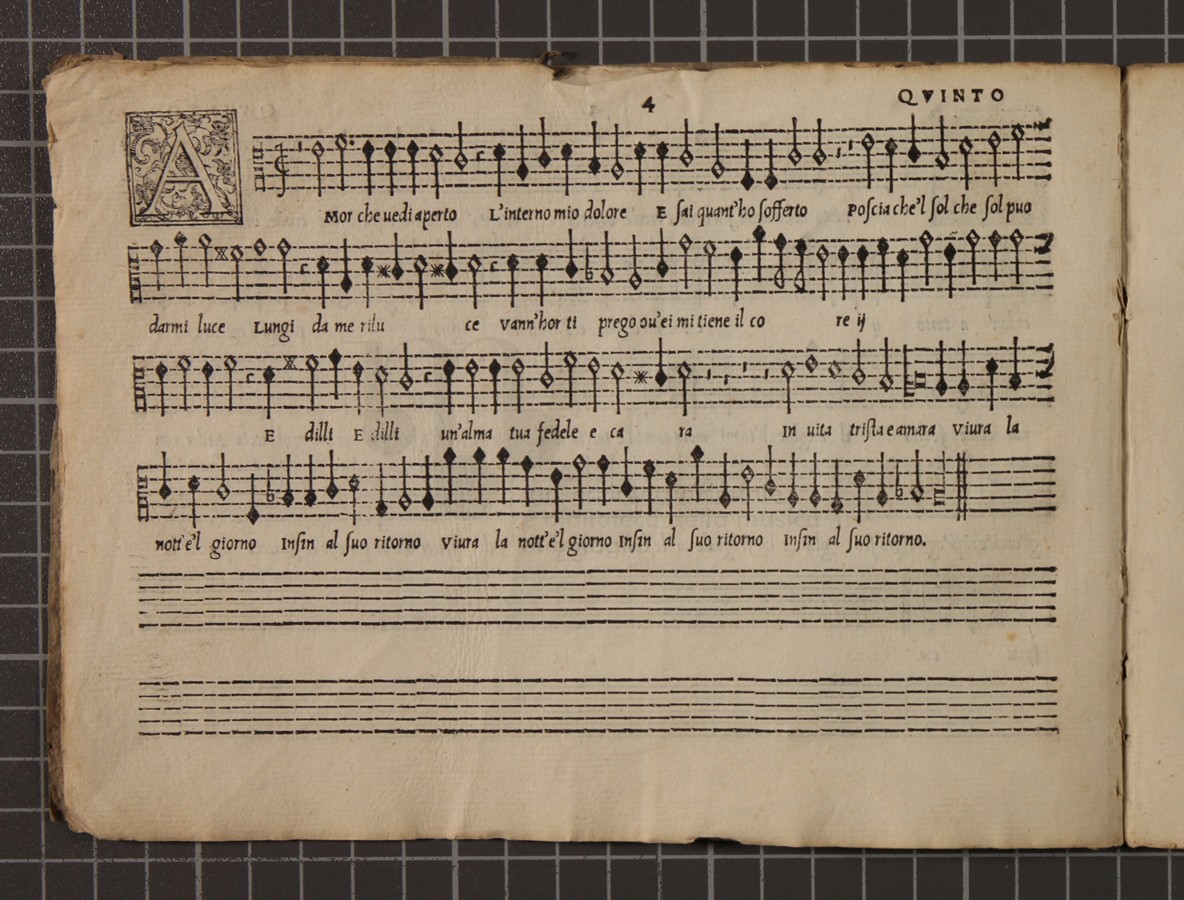 4
QVINTO
AMor che uedi aperto L'interno mio dolore E sai quant'ho sofferto Poscia che'l sol che sol puo
darmi luce Lungi da me rilu ce Vann'hor ti prego ou'ei mi tiene il co re ij
E dilli E dilli un'alma tua fedele e ca ra In uita trista e amara Viura la
nott'e'l giorno Insin al suo ritorno Viura la nott'e'l giorno Insin al suo ritorno Insin al suo ritorno.